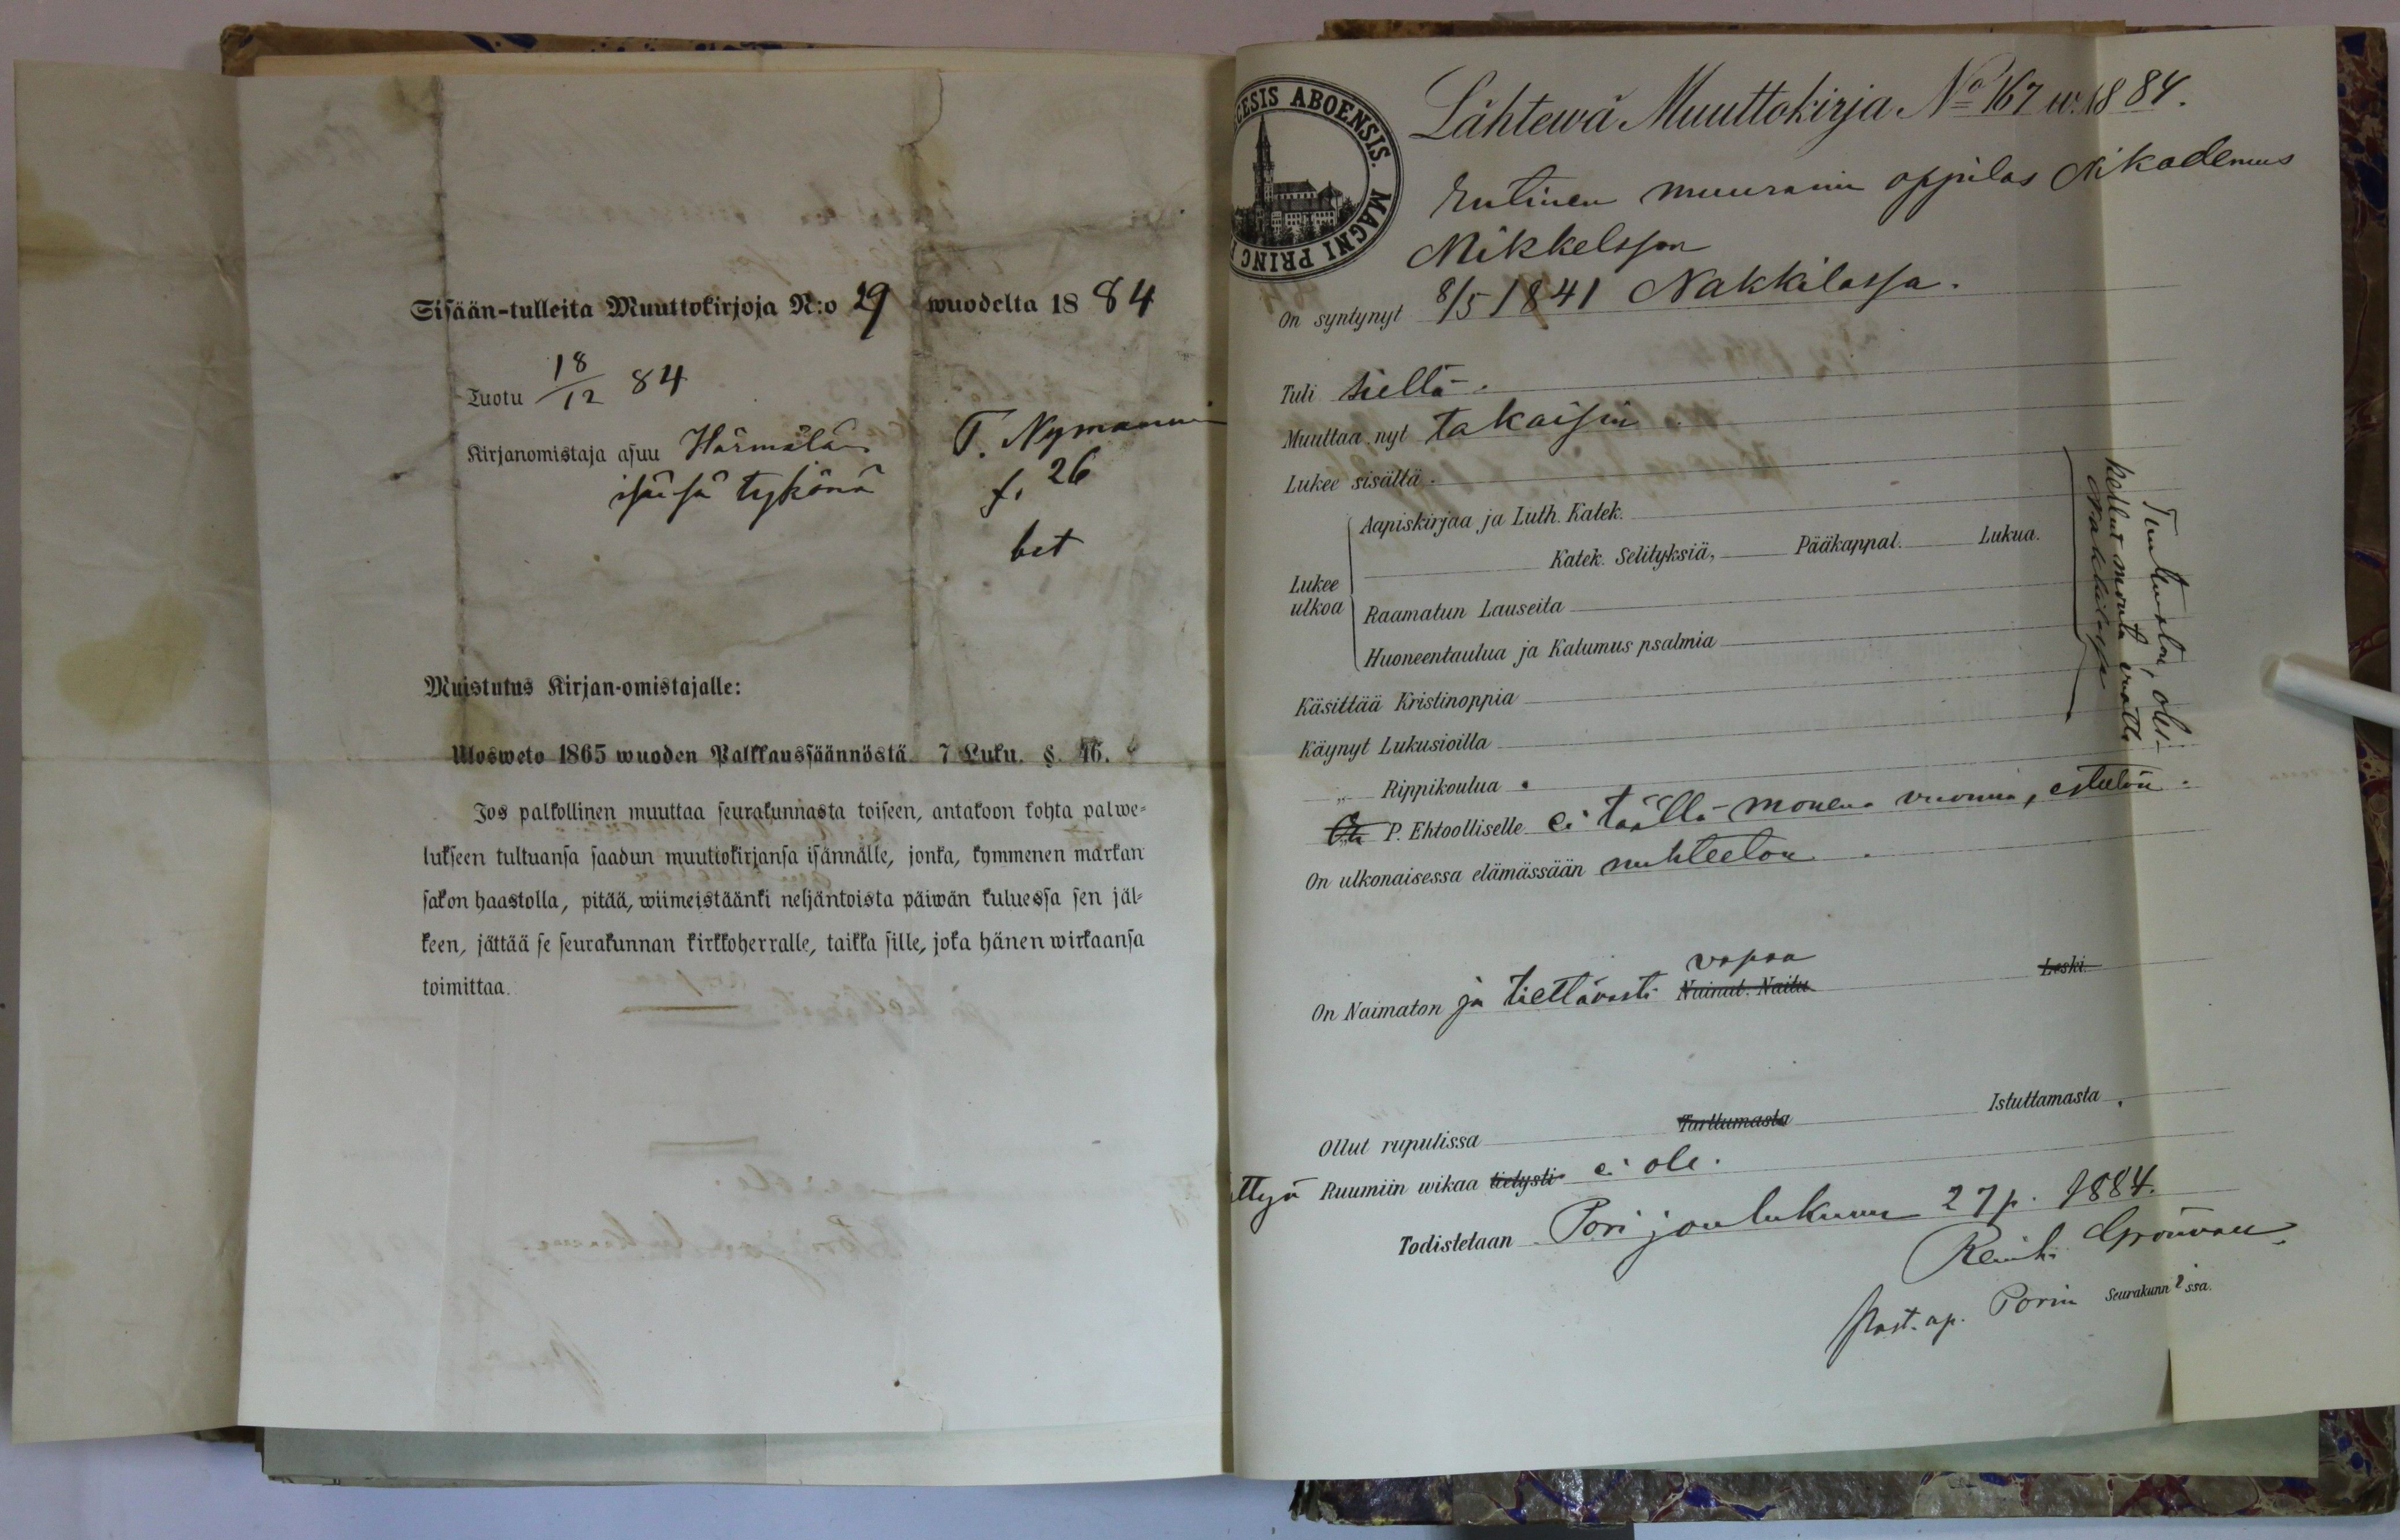 Sisään-tulleita Muuttokirjoja N:o 29 wuodelta 1884
Tuotu 18/12 84
Kirjanomistaja asuu Härmälä
isänsä tykönä
T. Nymannin
f. 26
bet
Muistutus Kirjan-omistajalle:
Ulosweto 1865 wuoden Palkkaussäännöstä 7 Luku. §. 46.
Jos palkollinen muuttaa seurakunnasta toiseen, antakoon kohta palwe-
lukseen tultuansa saadun muuttokirjansa isännälle, jonka, kymmenen markan
sakon haastolla, pitää, wiimeistäänki neljäntoista päiwän kuluessa sen jäl-
keen, jättää se seurakunnan kirkkoherralle, taikka sille, joka hänen wirkaansa
toimittaa.
CESIS ABOENSIS. MAGNI PRINC
Lähtewä Muuttokirja No 167 w. 1884.
Entinen muurarin oppilas Nikodemus
Mikkelsson
On syntynyt 8/5 1841 Nakkilassa.
Tuli sieltä.
Muuttaa nyt takaisin.
Lukee sisältä
Lukee ulkoa
Aapiskirjaa ja Luth. Katek.
Katek. Selityksiä, Pääkappal. Lukua.
Raamatun Lauseita
Huoneentaulua ja Katumus psalmia
Käsittää Kristinoppia
Käynyt Lukusioilla
„ Rippikoulua
Tuntematon, oles-
kellut monta vuotta
Nakkilassa
P. Ehtoolliselle ei täällä monena vuonna, esteetön.
On ulkonaisessa elämässään nuhteeton.
On Naimaton ja tiettävästi vapaa Nainut. Naitu Leski.
Ollut rupulissa Tarttumasta Istuttamasta.
Ruumiin wikaa tietysti ei ole.
Todistetaan Pori joulukuun 27 p. 1884.
Reinh. Grönvall.
Past. ap. Porin Seurakunn ssa.